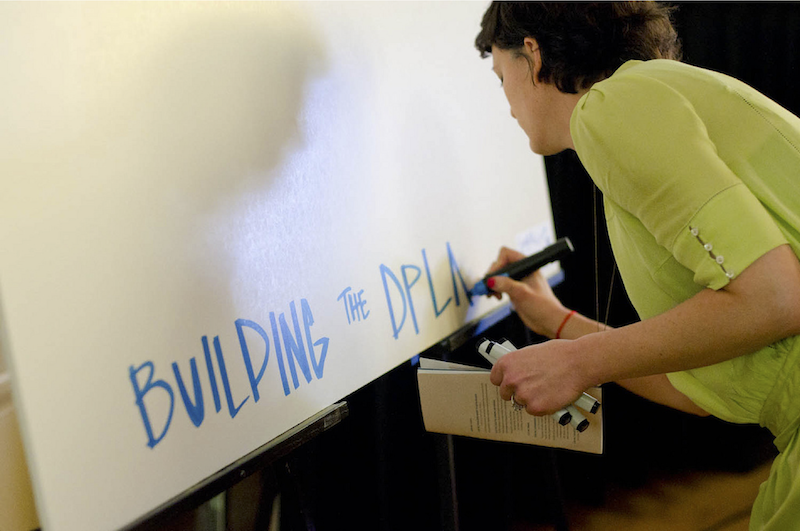 BUILDING THE DPLA